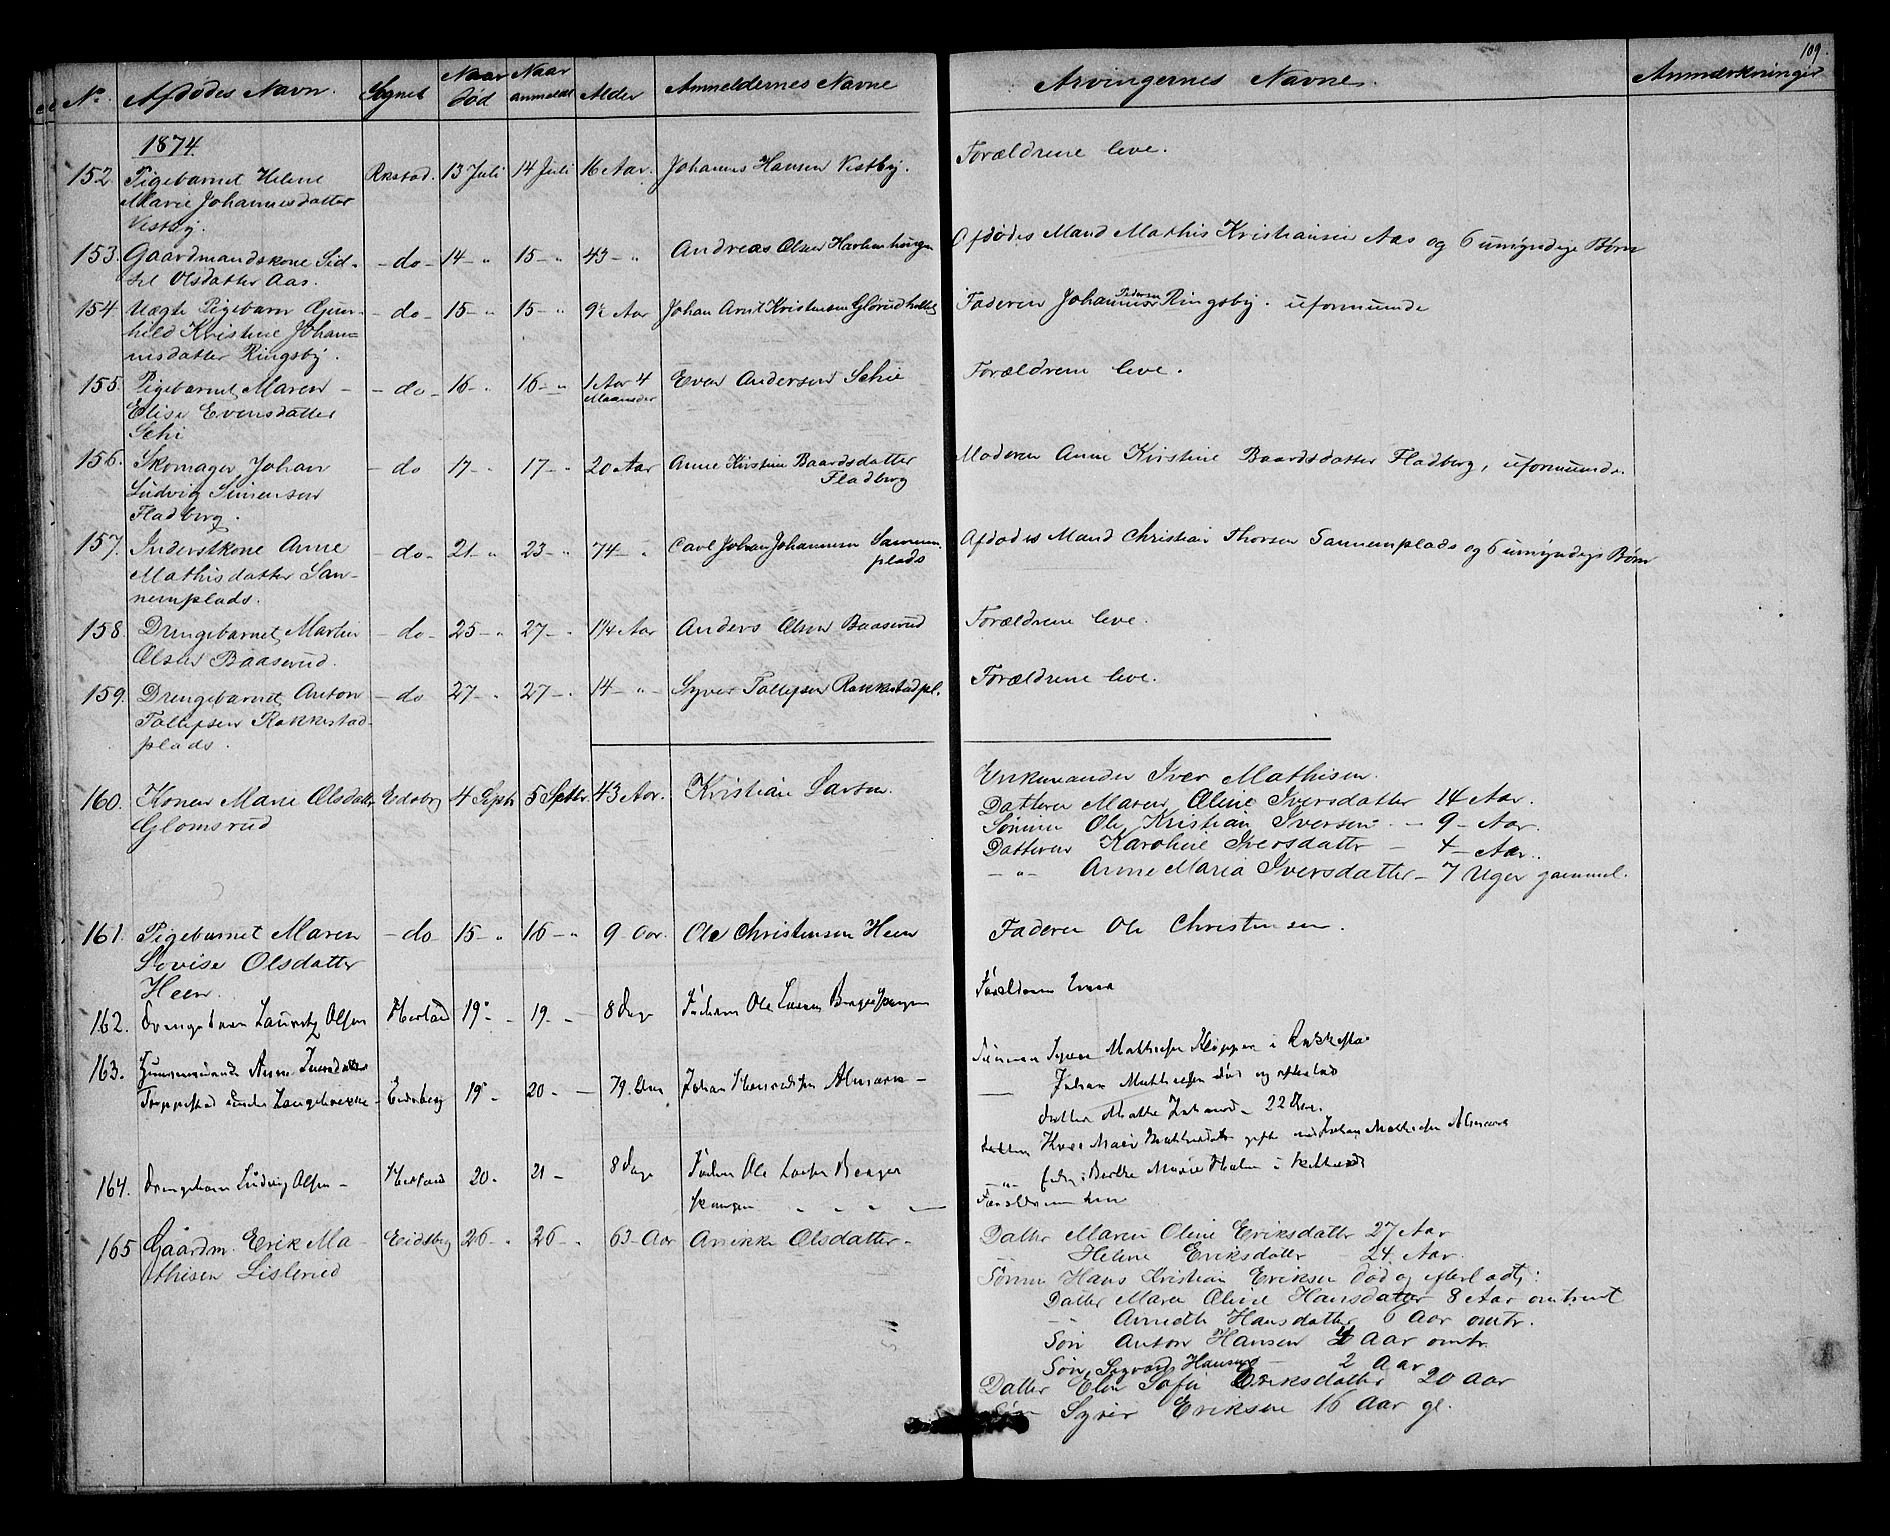 109.
No. Afdødes Navn. Sognet Naar død Naar anmeldt Alder Anmeldernes Navne Arvingernes Navne. Anmærkninger
1874.
152. Pigebarnet Helene Rkstad. 13 Juli 14 Juli 16 Aar. Johannes Hansen Vestby. Forældrene leve.
Marie Johannesdatter
Vestby.
153. Gaardmandskone Sid- - do - 14 - " 15 - " 43 - " Andreas Olsen Afdødes Mand Mathis Kristiansen Aas og 6 umyndige Børn
sel Olsdatter Aas.
154 Uægte Pigebarn Gun- - do - 15 - " 15 - " 9½ Aar Johan Arnt Kristensen Faderen Johannes Pedersen Ringsby. uformuende
hild Kristine Johan-
nesdatter Ringsby.
155. Pigebarnet Maren - do - 16 - " 16 - " 1 Aar 4 Maaneder Even Andersen Schie Forældrene leve.
Elise Evensdatter
Schi
156. Skomager Johan - do 17 - " 17 - " 20 Aar Anne Kirstine Baardsdatter Moderen Anne Kirstine Baardsdatter Fladberg, uformuende.
Ludvig Simensen Fladberg
Fladberg.
157. Inderstkone Anne - do - 21 - " 23 - " 74 - " Carl Johan Johannesen Sannem- Afdødes Mand Christian Thorsen Sannemplads og 6 umyndige Børn
Mathisdatter San- plads
nemplads.
158 Drengebarnet Martin - do - 25 - " 27 - " 1¼ Aar Anders Olsen Baaserud Forældrene leve.
Olsen Baaserud.
159. Drengebarnet Anton - do 27 - " 27 - " 14 - " - Syver Tollefsen Rakkestadpl. Forældrene leve.
Tollefsen Rakkestad-
plads.
160. Konen Marie Olsdatter Eidsberg 4 Septr 5 Septbr 43 Aar. Kristian Larsen. Enkemanden Iver Mathisen.
Glomsrud Datteren Maren Oline Iversdatter 14 Aar.
Sønnen Ole Kristian Iversen - 9 - Aar.
Datteren Karoline Iversdatter - 4 - Aar.
- " - Anne Maria Iversdatter - 7 Uger gammel.
161. Pigebarnet Maren - do - 15 - " 16 - " 9 - Aar. Ole Christensen Heen Faderen Ole Christensen.
Lovise Olsdatter
Heen.
162. Drengebarn Lauritz Olsen Herland 19 - 19 - 8 Dage Faderen Ole Larsen Forældrene leve
163. Anne 19 - 20 - 79. Aar Johan Sønnen Syver Mathisen i Rakkestad
Eidsberg Johan Mathisen død og efterlod
Datter 22 Aar.
164. Drengebarn Ludvig Olsen - Herland 20 - 21 - 8 Dage Faderen Ole Larsen Forældrene leve
165 Gaardm. Erik Ma- Eidsberg 26 - " 26 - " 63 - Aar Annikke Olsdatter - Datter Maren Oline Eriksdatter 27 Aar
thisen Lislerud Helene Eriksdatter - 24 Aar.
Sønnen Hans Kristian Eriksen død og efterladt:
Datter Maren Oline Hansdatter 8 Aar omtrent
- Annette Hansdatter 6 Aar omtr.
Søn Anton Hansen 4 Aar omtr.
Søn Sigvard Hansen - 2 Aar
Datter Elen Sofie Eriksdatter 20 Aar
Søn Syver Eriksen 16 Aar gl.